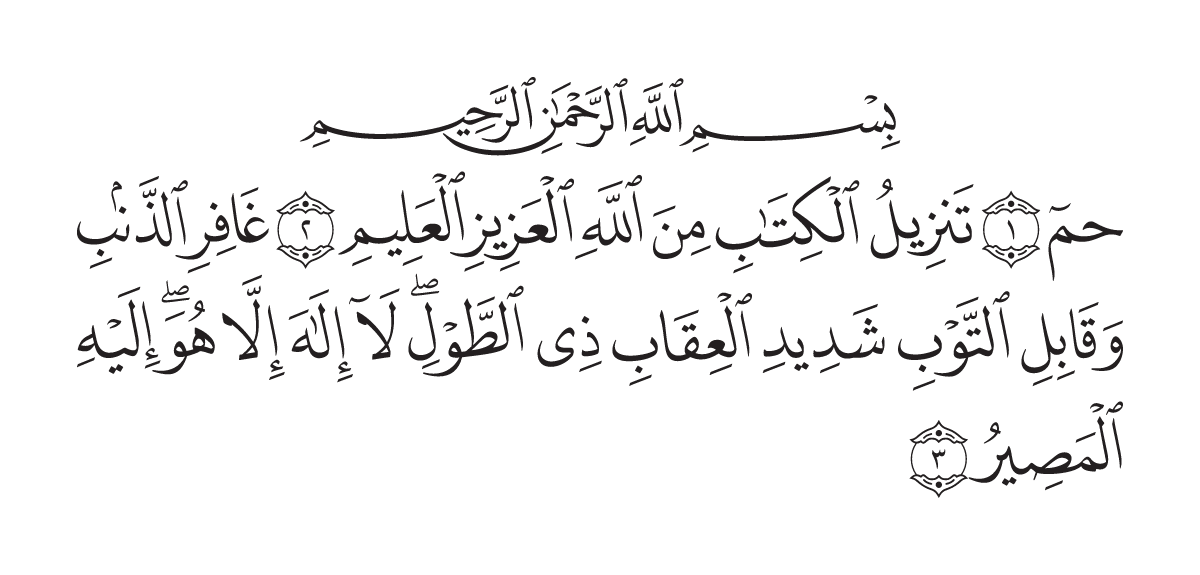 بِسْمِ ٱللَّهِ ٱلرَّحْمَٰنِ ٱلرَّحِيمِ
حمٓ ١ تَنزِيلُ ٱلْكِتَٰبِ مِنَ ٱللَّهِ ٱلْعَزِيزِ ٱلْعَلِيمِ ٢ غَافِرِ ٱلذَّنۢبِ
وَقَابِلِ ٱلتَّوْبِ شَدِيدِ ٱلْعِقَابِ ذِى ٱلطَّوْلِۖ لَآ إِلَٰهَ إِلَّا هُوَۖ إِلَيْهِ
ٱلْمَصِيرُ ٣